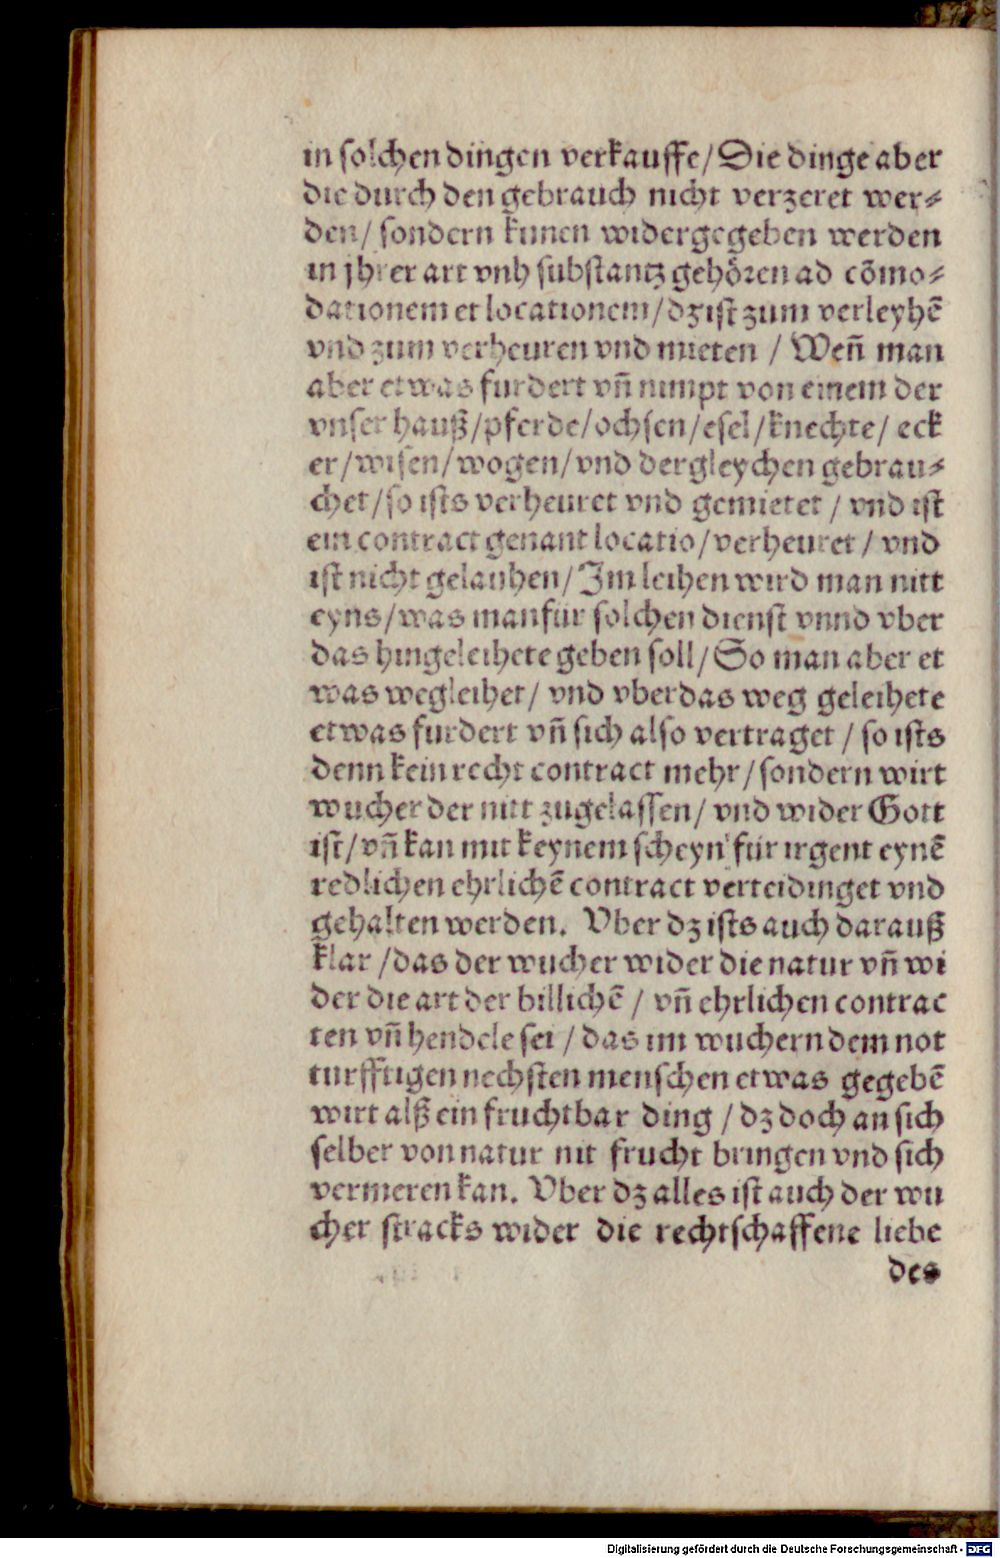 in solchen dingen verkauffe/Die dinge aber
die durch den gebrauch nicht verzeret wer⸗
den/ sondern kunen widergegeben werden
in jhrer art vnh substantz gehören ad cōmo⸗
dationem et locationem/dz ist zum verleyhē
vnd zum verheuren vnd mieten / Weñ man
aber etwas furdert vñ nimpt von einem der
vnser hauß/pferde/ochsen/esel/knechte/ eck
er/wisen/wogen/vnd dergleychen gebrau⸗
chet/so ists verheuret vnd gemietet / vnd ist
ein contract genant locatio/verheuret / vnd
ist nicht gelauhen/Im leihen wird man nitt
eyns/was man für solchen dienst vnnd vber
das hingeleihete geben soll/So man aber et
was wegleihet/ vnd vber das weg geleihete
etwas furdert vñ sich also vertraget / so ists
denn kein recht contract mehr/sondern wirt
wucher der nitt zugelassen/ vnd wider Gott
ist/vñ kan mit keynem scheyn für irgent eynē
redlichen ehrlichē contract verteidinget vnd
gehalten werden. Vber dz ists auch darauß
klar /das der wucher wider die natur vñ wi
der die art der billichē / vñ ehrlichen contrac
ten vñ hendele sei / das im wuchern dem not
turfftigen nechsten menschen etwas gegebē
wirt alß ein fruchtbar ding /dz doch an sich
selber von natur nit frucht bringen vnd sich
vermeren kan. Vber dz alles ist auch der wu
cher stracks wider die rechtschaffene liebe
des
Digitalisierung gefördert durch die Deutsche Forschungsgemeinschaft - DFG